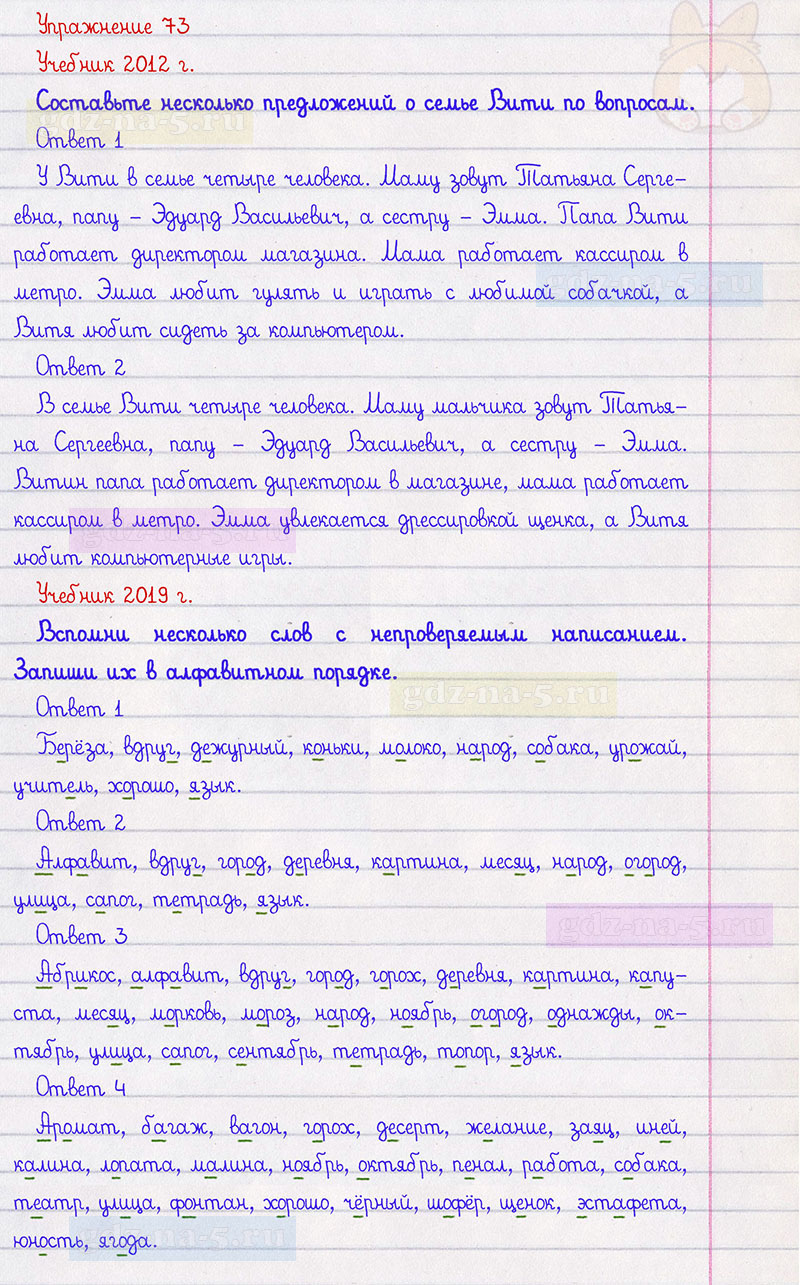 Упражнение 73
Учебник 2012 г.
Составьте несколько предложений о семье Вити по вопросам.
gdz-na-5.ru
Ответ 1
У Вити в семье четыре человека. Маму зовут Татьяна Серге-
евна, папу – Эдуард Васильевич, а сестру – Эмма. Папа Вити
работает директором магазина. Мама работает кассиром в
gdz-na-5.ru
метро. Эмма любит гулять и играть с любимой собачкой, а
Витя любит сидеть за компьютером.
Ответ 2
В семье Вити четыре человека. Маму мальчика зовут Татья-
на Сергеевна, папу – Эдуард Васильевич, а сестру – Эмма.
Витин папа работает директором в магазине, мама работает
кассиром в метро. Эмма увлекается дрессировкой щенка, а Витя
gdz-na-5.ru
любит компьютерные игры.
Учебник 2019 г.
Вспомни несколько слов с непроверяемым написанием.
Запиши их в алфавитном порядке.
gdz-na-5.ru
Ответ 1
Берёза, вдруг, дежурный, коньки, молоко, народ, собака, урожай,
учитель, хорошо, язык.
Ответ 2
Алфавит, вдруг, город, деревня, картина, месяц, народ, огород,
улица, сапог, тетрадь, язык.
gdz-na-5.ru
Ответ 3
Абрикос, алфавит, вдруг, город, горох, деревня, картина, капу-
ста, месяц, морковь, мороз, народ, ноябрь, огород, однажды, ок-
тябрь, улица, сапог, сентябрь, тетрадь, топор, язык.
Ответ 4
Аромат, багаж, вагон, горох, десерт, желание, заяц, иней,
калина, лопата, малина, ноябрь, октябрь, пенал, работа, собака,
театр, улица, фонтан, хорошо, чёрный, шофёр, щенок, эстафета,
gdz-na-5.ru
юность, ягода.